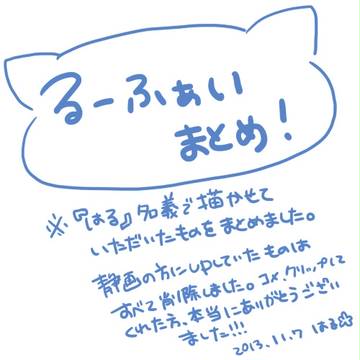 るーふぁい
まとめ!
※『はる』名義で描かせて
いただいたものをまとめました。
静画の方にupしていたものは
すべて削除しました。コメ、クリップして
くれた方、本当にありがとうござい
ました!!!
2013.11.7 はる